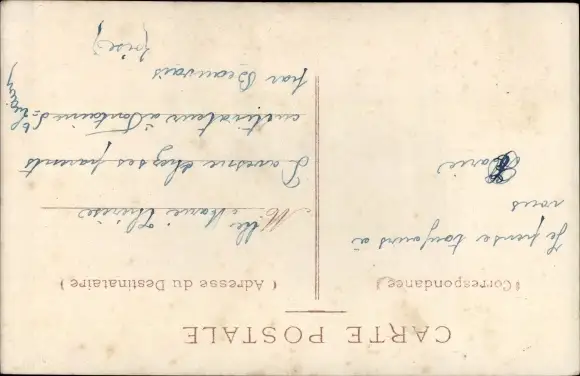 CARTE POSTALE
(Correspondance)
(Adresse du Destinataire)
Je pense toujours à
vous
Marie
Mlle Marie Thérèse
Lavesne chez ses parents
cultivateur à Fontaine St
Lucien
par Beauvais
(oise)